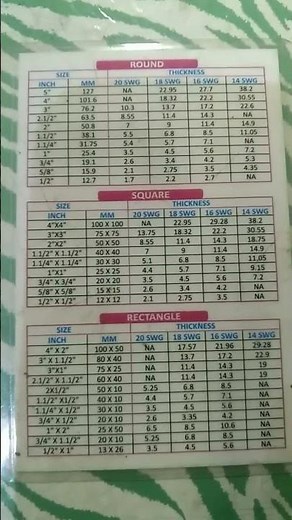 ROUND
SIZE THICKNESS
INCH MM 20 SWG 18 SWG 16 SWG 14 SWG
5" 127 NA 22.95 27.7 38.2
4" 101.6 NA 18.32 22.2 30.55
3" 76.2 10.3 13.7 17.2 22.6
2.1/2" 63.5 8.55 11.4 14.3 NA
2" 50.8 7 9 11.4 14.9
1.1/2" 38.1 5.5 6.8 8.5 11.05
1.1/4" 31.75 5.4 5.7 7.1 NA
1" 25.4 3.5 4.5 5.6 7.2
3/4" 19.1 2.6 3.4 4.2 5.3
5/8" 15.9 2.1 2.75 3.5 4.35
1/2" 12.7 1.7 2.2 2.7 NA
SQUARE
SIZE THICKNESS
INCH MM 20 SWG 18 SWG 16 SWG 14 SWG
4"X4" 100 X 100 NA 22.95 29.28 38.2
3"X3" 75 X 75 13.75 18.32 22.2 30.55
2"X2" 50 X 50 8.55 11.4 14.3 18.75
1.1/2" X 1.1/2" 40 X 40 7 9 11.4 14.9
1.1/4" X 1.1/4" 30 X 30 5.1 6.8 8.5 11.05
1"X1" 25 X 25 4.4 5.7 7.1 9.15
3/4" X 3/4" 20 X 20 3.5 4.5 5.6 7.2
5/8" X 5/8" 15 X 15 2.6 3.4 4.2 NA
1/2" X 1/2" 12 X 12 2.1 2.75 3.5 NA
RECTANGLE
SIZE THICKNESS
INCH MM 20 SWG 18 SWG 16 SWG 14 SWG
4" X 2" 100 X 50 NA 17.57 21.96 29.28
3" X 1.1/2" 80 X 40 NA 13.7 17.2 22.9
3"X1" 75 X 25 NA 11.4 14.3 19
2.1/2" X 1.1/2" 60 X 40 NA 11.4 14.3 19
2X1/2" 50 X 10 5.25 6.8 8.5 NA
1.1/2" X1/2" 40 X 10 4.4 5.7 7.1 NA
1.1/4" X 1/2" 30 X 10 3.5 4.5 5.6 NA
3/4" X 1/2" 20 X 10 2.6 3.35 4.2 NA
1" X 2" 25 X 50 6.5 8.5 10.6 NA
3/4" X 1.1/2" 20 X 10 5.25 6.8 8.5 NA
1/2" X 1" 13 X 26 3.5 4.5 5.6 NA